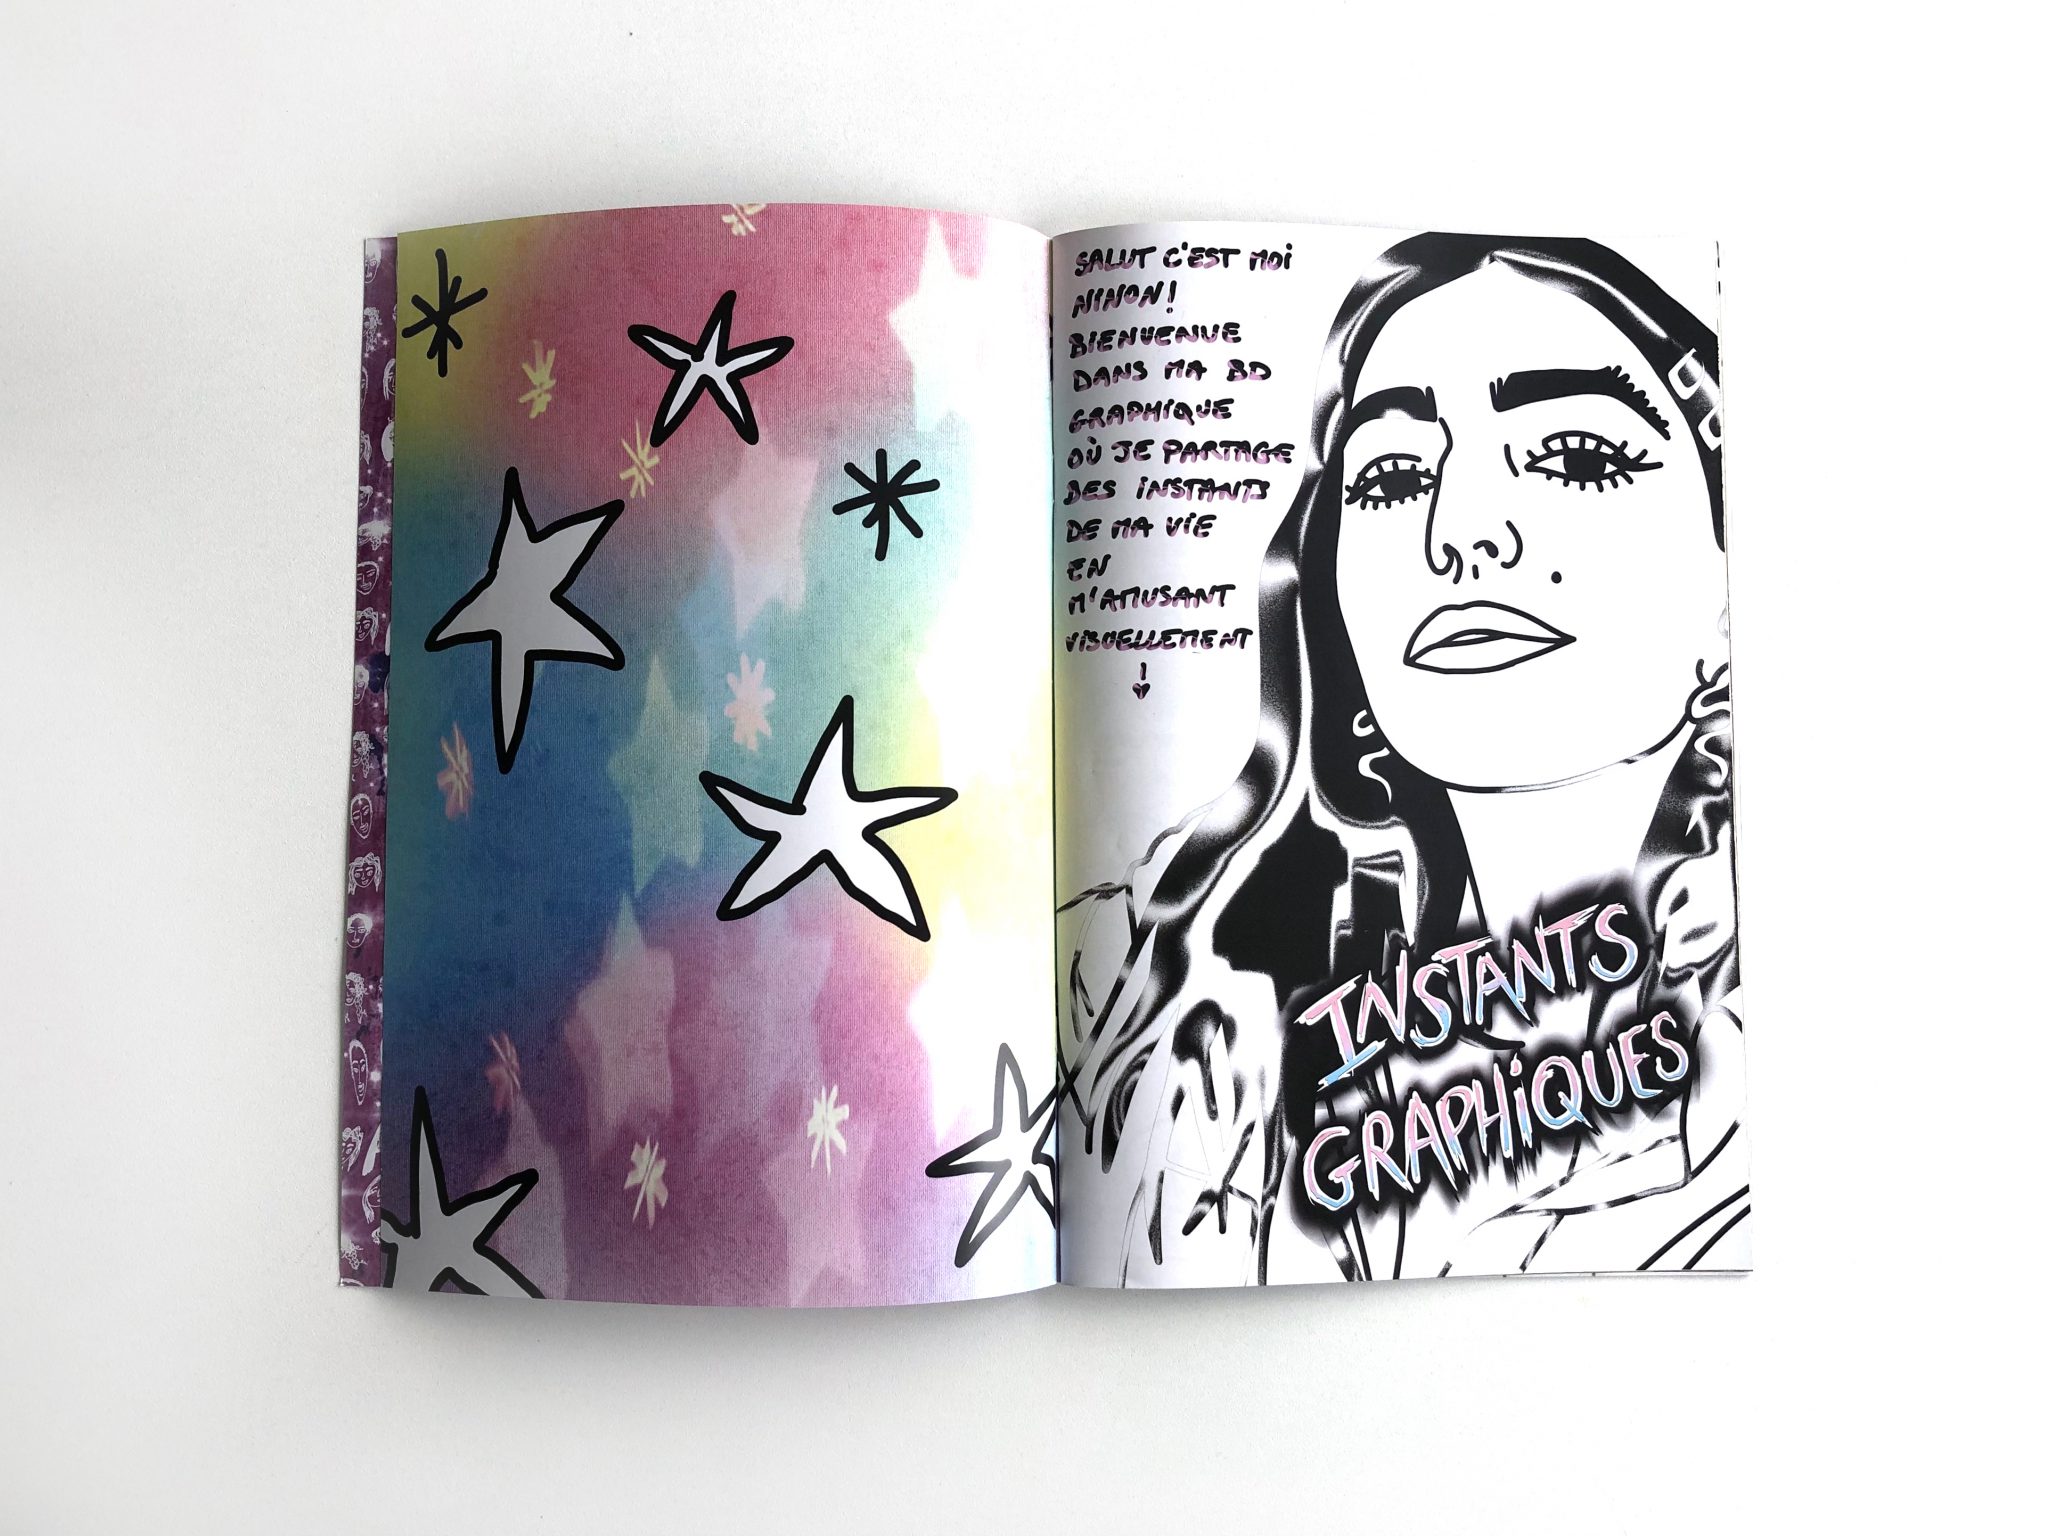 SALUT C'EST MOi
NINON!
BIENVENUE
DANS MA BD
GRAPHiQUE
OÙ JE PARTAGE
DES iNSTANTS
DE MA ViE
EN
M'AMUSANT
ViSUELLEMENT
!
INSTANTS
GRAPHiQUES